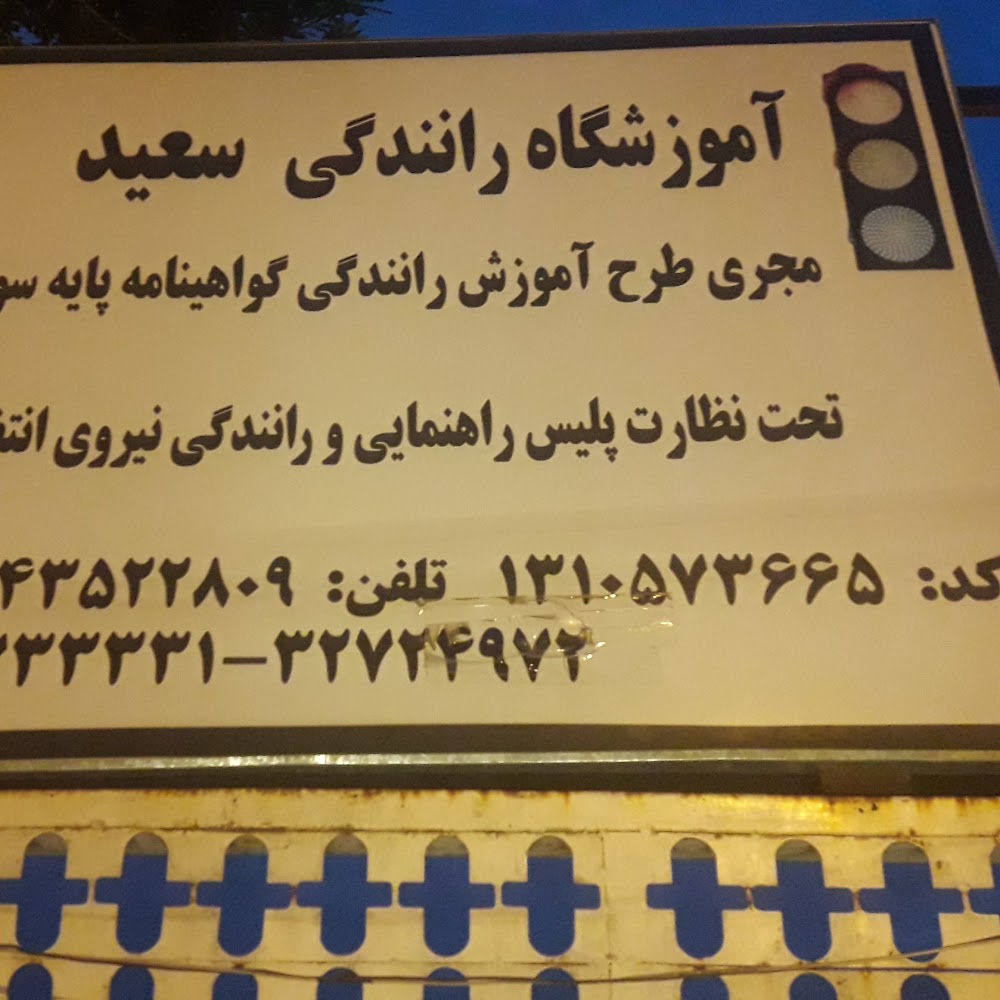 آموزشگاه رانندگی سعید
مجری طرح آموزش رانندگی گواهینامه پایه
تحت نظارت پلیس راهنمایی و رانندگی نیروی
کد: ۱۳۱۰۵۷۳۶۶۵ تلفن: ۴۳۵۲۲۸۰۹
۳۳۳۳۱-۳۲۷۲۴۹۷۲